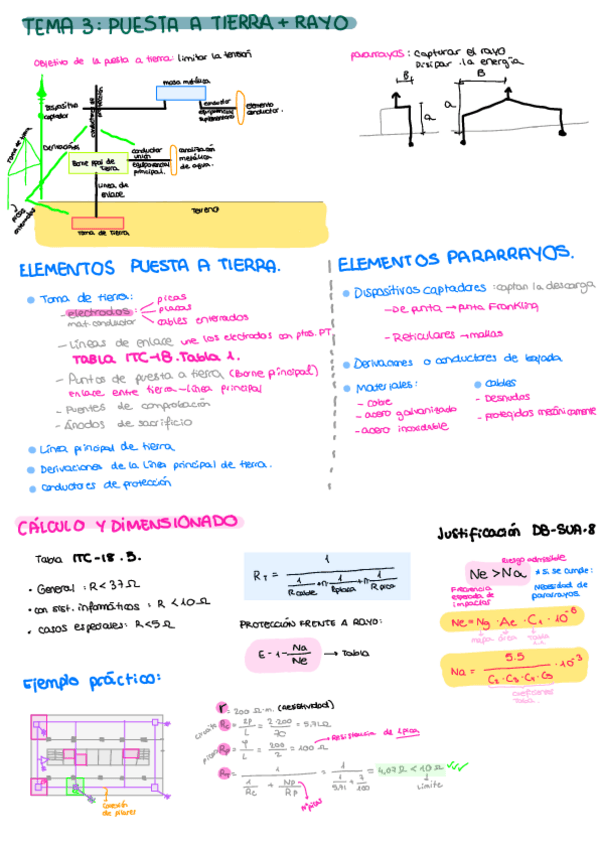 TEMA 3: PUESTA A TIERRA + RAYO
Objetivo de la puesta a tierra: limitar la tensión
pararrayos: Capturar el rayo
Disipar la energía
masa metálica
Dispositivo
captador
conductor de
protección
conductor
equipotencial
suplementario
elemento
conductor.
Derivaciones
Toma de tierra
conductor
unión
equipotencial
principal.
canalización
metálica
de agua.
Borne ppal de
tierra
Línea de
enlace
picas
enterradas
Terreno
Toma de tierra
B
B
a
a
ELEMENTOS PUESTA A TIERRA.
Toma de tierra:
- electrodos:
mat. conductor
picas
placas
cables enterrados
- Líneas de enlace une los electrodos con ptos. PT
TABLA ITC-18. Tabla 1.
- Puntos de puesta a tierra (Borne principal)
enlace entre tierra - línea principal
- Puentes de comprobación
- Ánodos de sacrificio
Línea principal de tierra
Derivaciones de la Línea principal de tierra.
conductores de protección
ELEMENTOS PARARRAYOS.
Dispositivos captadores: captan la descarga
- De punta → punta Frankling
- Reticulares → mallas
Derivaciones o conductores de bajada
Materiales:
- cobre
- acero galvanizado
- acero inoxidable
cables
- Desnudos
- protegidos mecánicamente
CÁLCULO Y DIMENSIONADO
Tabla ITC-18.3.
• General: R < 37 Ω
• con sist. informáticos: R < 10 Ω
• casos especiales: R < 5 Ω
R T = 1 / (1/R cable + n 1/R placa + n 1/R pica)
PROTECCIÓN FRENTE A RAYO:
E - 1 - Na/Ne → Tabla
Justificación DB-SUA-8
Riesgo admisible
Ne > Na
* si se cumple:
Necesidad de
pararrayos.
Frecuencia
esperada de
impactos
Ne = Ng · Ae · C1 · 10^-6
mapa área Tabla
Na = 5.5 / (C2 · C3 · C4 · C5) · 10^-3
coeficientes
Tabla.
Ejemplo práctico:
conexión
de pilares
r = 200 Ω·m. (Resistividad)
circuito Rc = 2P/L = 2·200/70 = 5,71 Ω
picas Rp = φ/L = 200/2 = 100 Ω → Resistencia de 1 pica
RT = 1 / (1/Rc + Np/Rp) = 1 / (1/5,71 + 7/100) = 4,07 Ω < 10 Ω
Nº picas
Límite